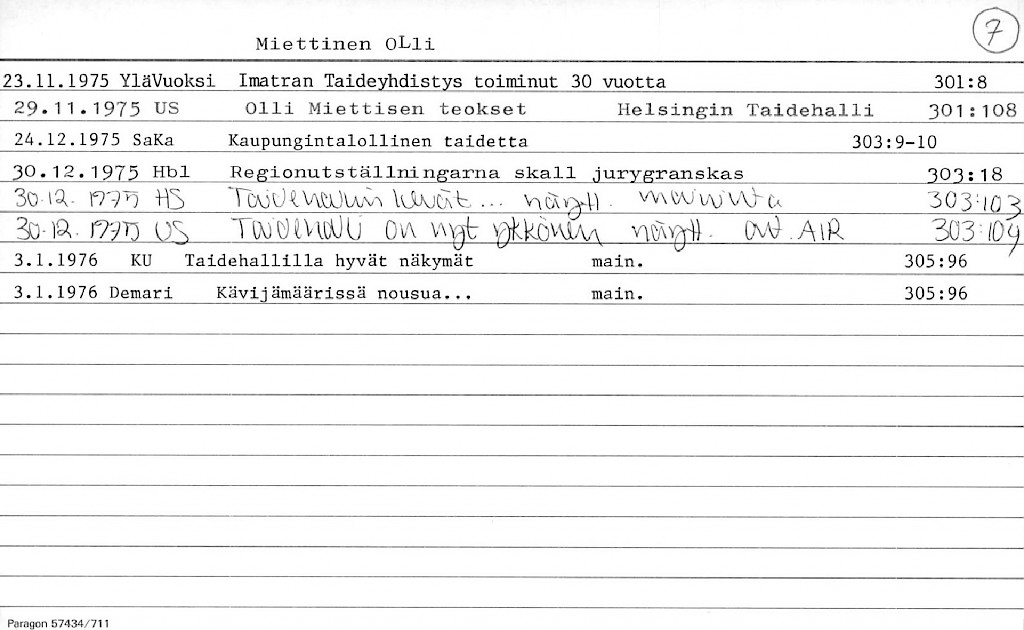 7
Miettinen OLli
23.11.1975 YläVuoksi Imatran Taideyhdistys toiminut 30 vuotta 301:8
29.11.1975 US Olli Miettisen teokset Helsingin Taidehalli 301:108
24.12.1975 SaKa Kaupungintalollinen taidetta 303:9-10
30.12.1975 Hbl Regionutställningarna skall jurygranskas 303:18
30.12. 1975 HS Taidehallin kevät... näytt. maininta 303:103
30.12. 1975 US Taidehalli on nyt ykkönen näytt. AIR 303:104
3.1.1976 KU Taidehallilla hyvät näkymät main. 305:96
3.1.1976 Demari Kävijämäärissä nousua... main. 305:96
Paragon 57434/711